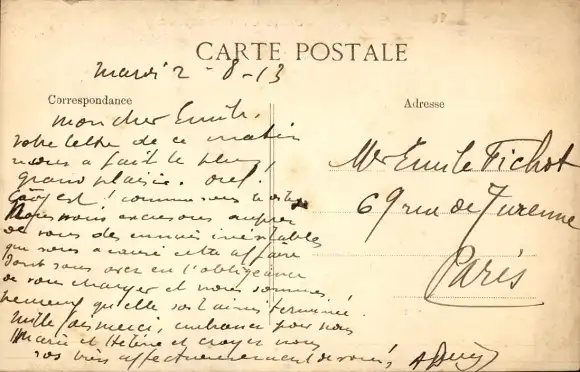 CARTE POSTALE
mardi 2-8-13
Correspondance
Adresse
mon cher Emile,
votre lettre de ce matin
nous a fait le plus
grand plaisir. ouf!
Mr Emile Fichot
nous nous excusons auprès
69 rue de Turenne
de vous des ennuis inévitables
que vous a causé cette affaire
Paris
dont vous avez eu l'obligeance
de vous charger et nous sommes
heureux qu'elle soit ainsi terminée.
mille fois merci, embrassez pour nous
Marie et Hélène et croyez nous
vos bien affectueusement dévoués,